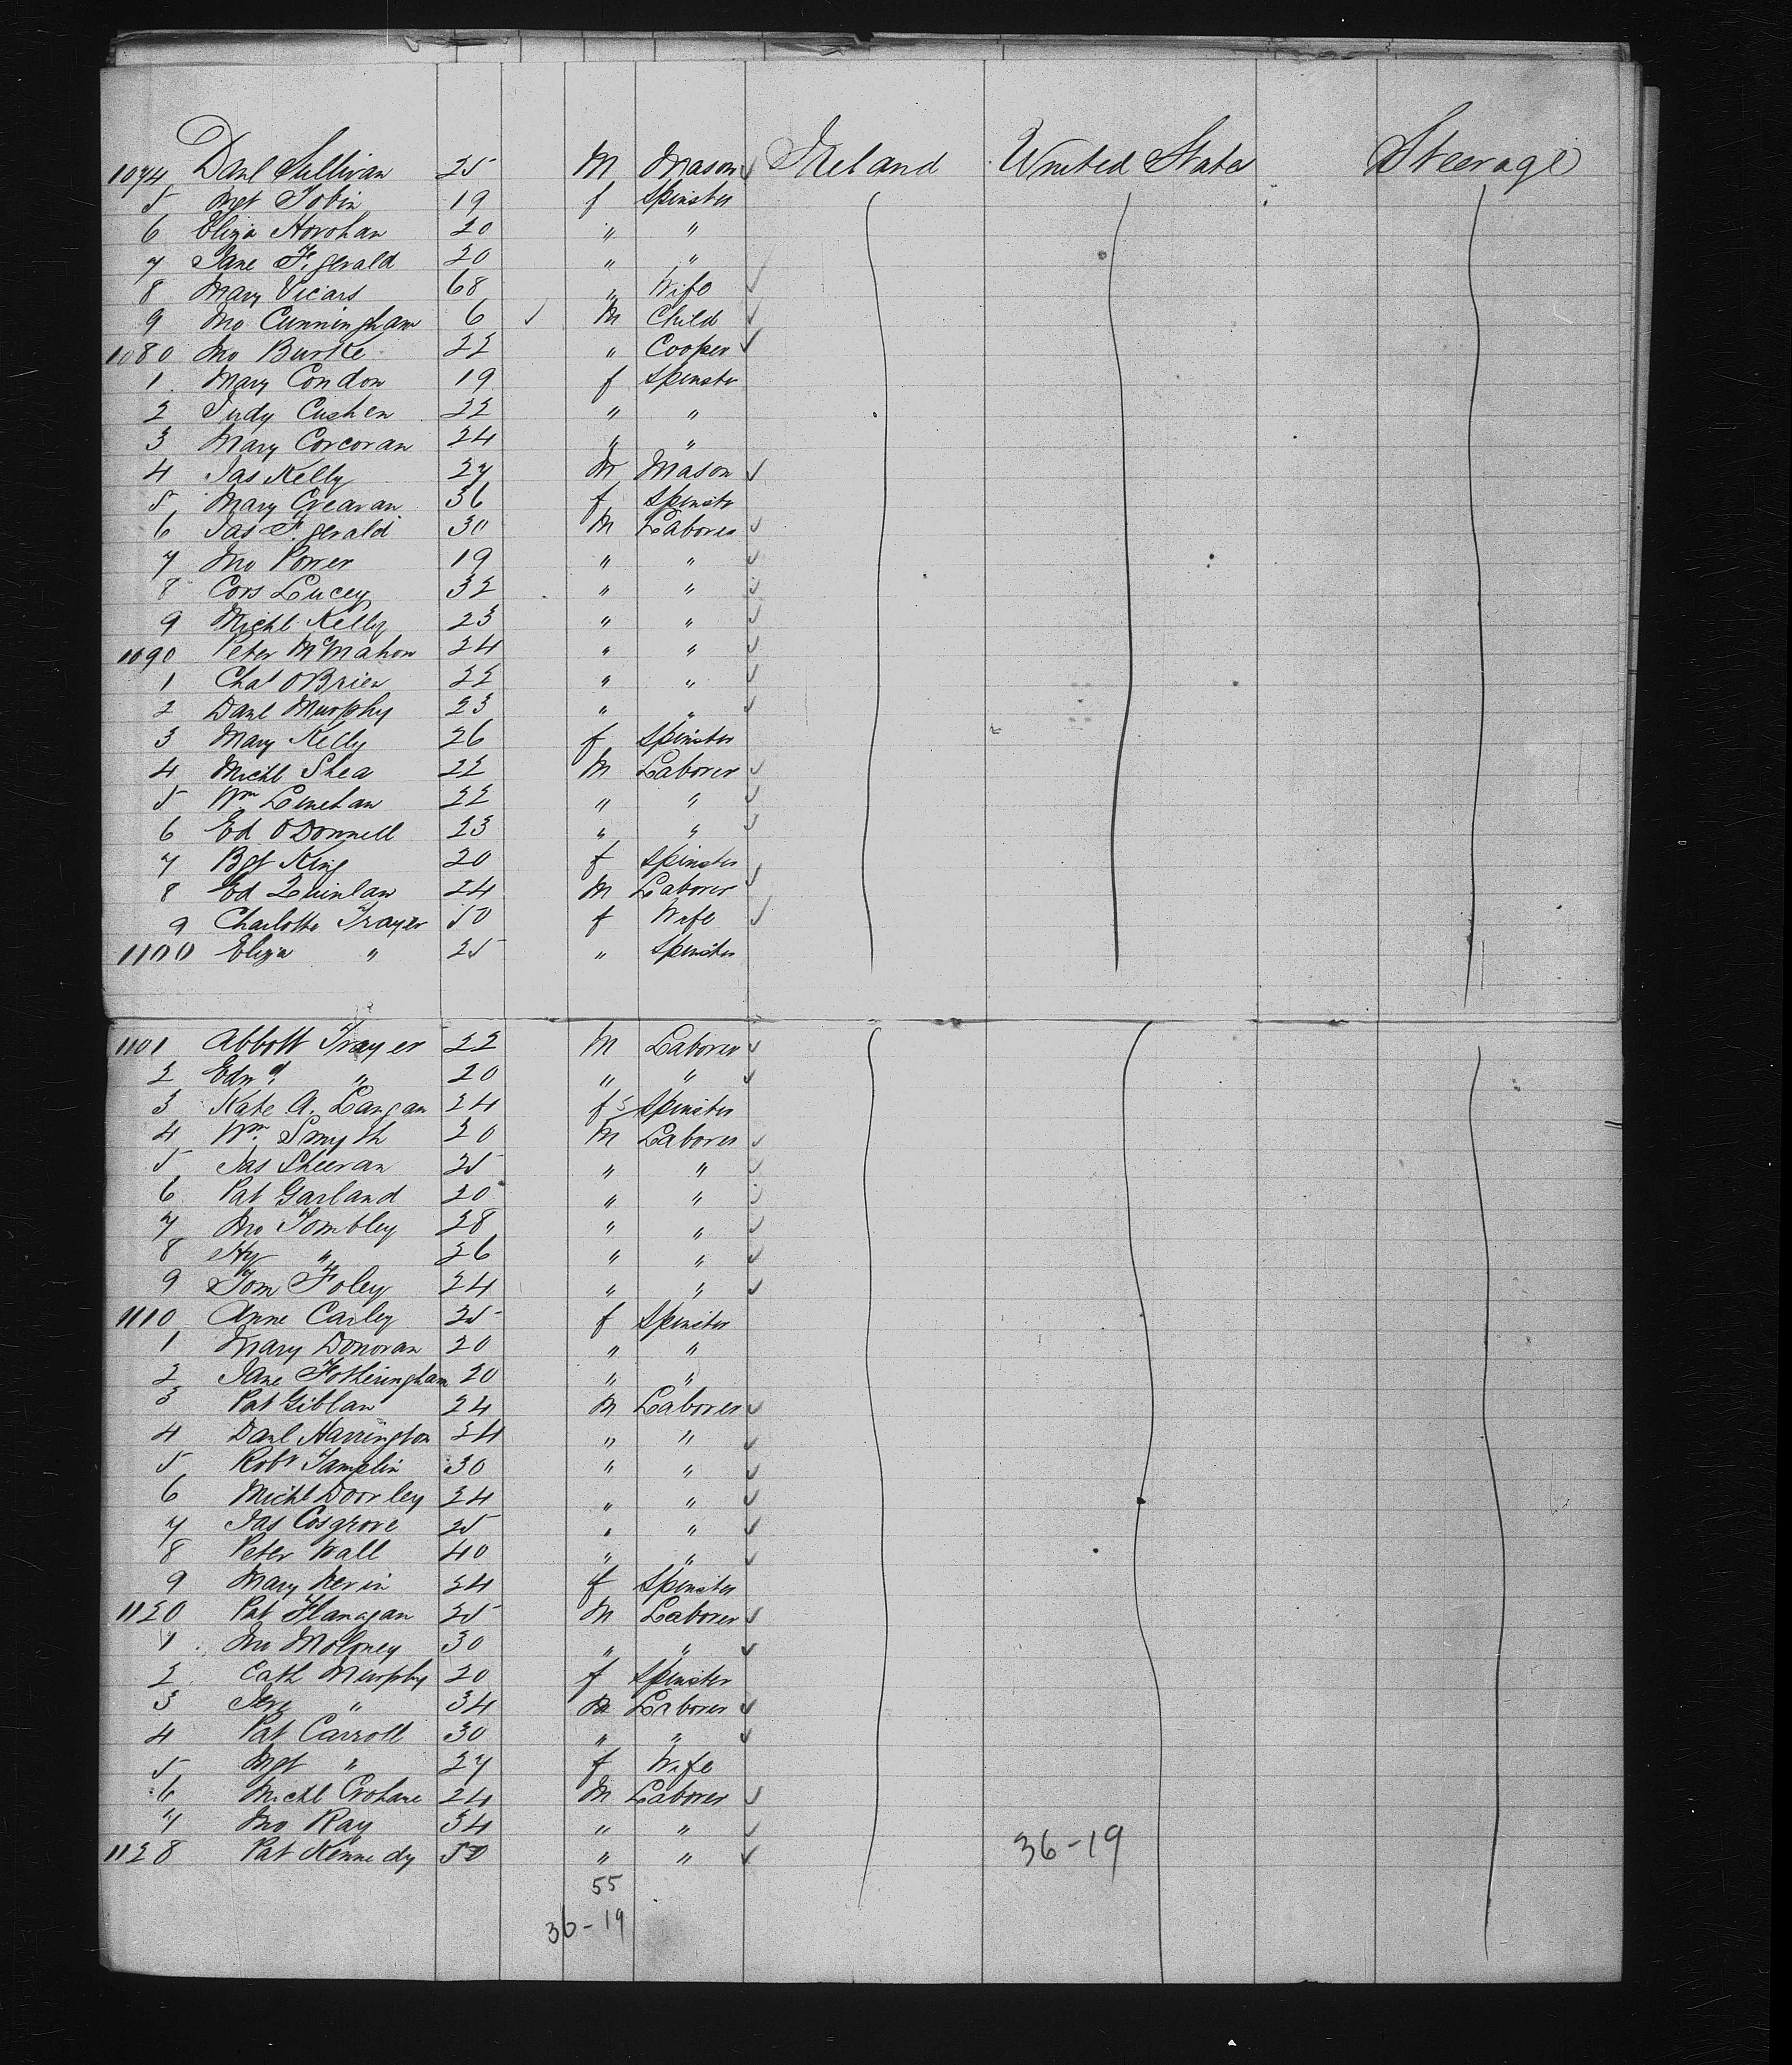 1074 Danl Sullivan 25 M Mason Ireland United States Steerage
5 Mgt Tobin 19 f Spinster
6 Eliza Horohan 20 " "
7 Jane F.gerald 20 " "
8 Mary Vicars 68 " Wife
9 Jno Cunningham 6 M Child
1080 Jno Burke 22 " Cooper
1 Mary Condon 19 f Spinster
2 Judy Cushen 22 " "
3 Mary Corcoran 24 " "
4 Jas Kelly 27 M Mason
5 Mary Crearan 36 f Spinstr
6 Jas F.gerald 30 M Laborer
7 Jno Power 19 " "
8 Cors Lucey 32 " "
9 Michl Kelly 23 " "
1090 Peter McMahon 24 " "
1 Chas OBrien 22 " "
2 Danl Murphy 23 " "
3 Mary Kelly 26 f Spinster
4 Michl Shea 22 M Laborer
5 Wm Linehan 22 " "
6 Ed ODonnell 23 " "
7 Bgt King 20 f Spinster
8 Ed Quinlan 24 M Laborer
9 Charlotte Trayer 50 f Wife
1100 Eliza " 25 " Spinster
1101 Abbott Trayer 22 M Laborer
2 Edwd. " 20 " "
3 Kate A. Langan 24 f Spinster
4 Wm. Smyth 20 M Laborer
5 Jas Sheeran 25 " "
6 Pat Garland 20 " "
7 Jno Tombley 28 " "
8 Hy " 26 " "
9 Tom Foley 24 " "
1110 Anne Carley 25 f Spinster
1 Mary Donovan 20 " "
2 Jane Fotheringham 20 " "
3 Pat Giblan 24 M Laborer
4 Danl Harrington 24 " "
5 Robt Tamplin 30 " "
6 Michl Doorley 24 " "
7 Jas Cosgrove 25 " "
8 Peter Wall 40 " "
9 Mary Kevin 24 f Spinster
1120 Pat Flanagan 25 M Laborer
1 Jno Moloney 30 " "
2 Cath Murphy 20 f Spinster
3 Jery " 34 M Laborer
4 Pat Carroll 30 " "
5 Mgt " 27 f Wife
6 Michl Crohane 24 M Laborer
7 Jno Ray 34 " "
1128 Pat Kennedy 50 " " 36-19
55
36-19